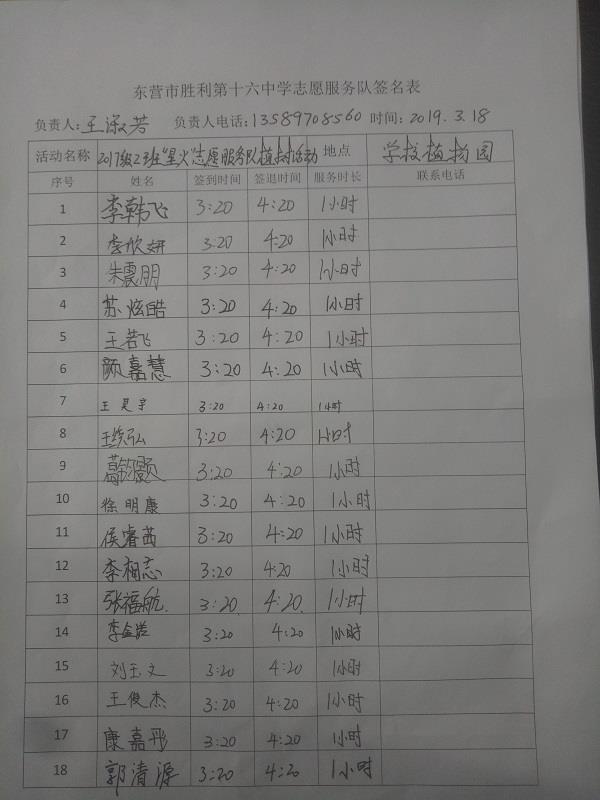 东营市胜利第十六中学志愿服务队签名表
负责人:王淑芳 负责人电话:13589708560 时间:2019.3.18
活动名称 2017级2班"星火"志愿服务队植树活动 地点 学校植物园
序号 姓名 签到时间 签退时间 服务时长 联系电话
1 李韩飞 3:20 4:20 1小时
2 李欣妍 3:20 4:20 1小时
3 朱震朋 3:20 4:20 1小时
4 苏炫皓 3:20 4:20 1小时
5 王若飞 3:20 4:20 1小时
6 颜嘉慧 3:20 4:20 1小时
7 王昊宇 3:20 4:20 1小时
8 3:20 4:20 1小时
9 3:20 4:20 1小时
10 徐明康 3:20 4:20 1小时
11 侯睿茜 3:20 4:20 1小时
12 李相志 3:20 4:20 1小时
13 张福航 3:20 4:20 1小时
14 3:20 4:20 1小时
15 刘玉文 3:20 4:20 1小时
16 王俊杰 3:20 4:20 1小时
17 康嘉彤 3:20 4:20 1小时
18 郭清源 3:20 4:20 1小时